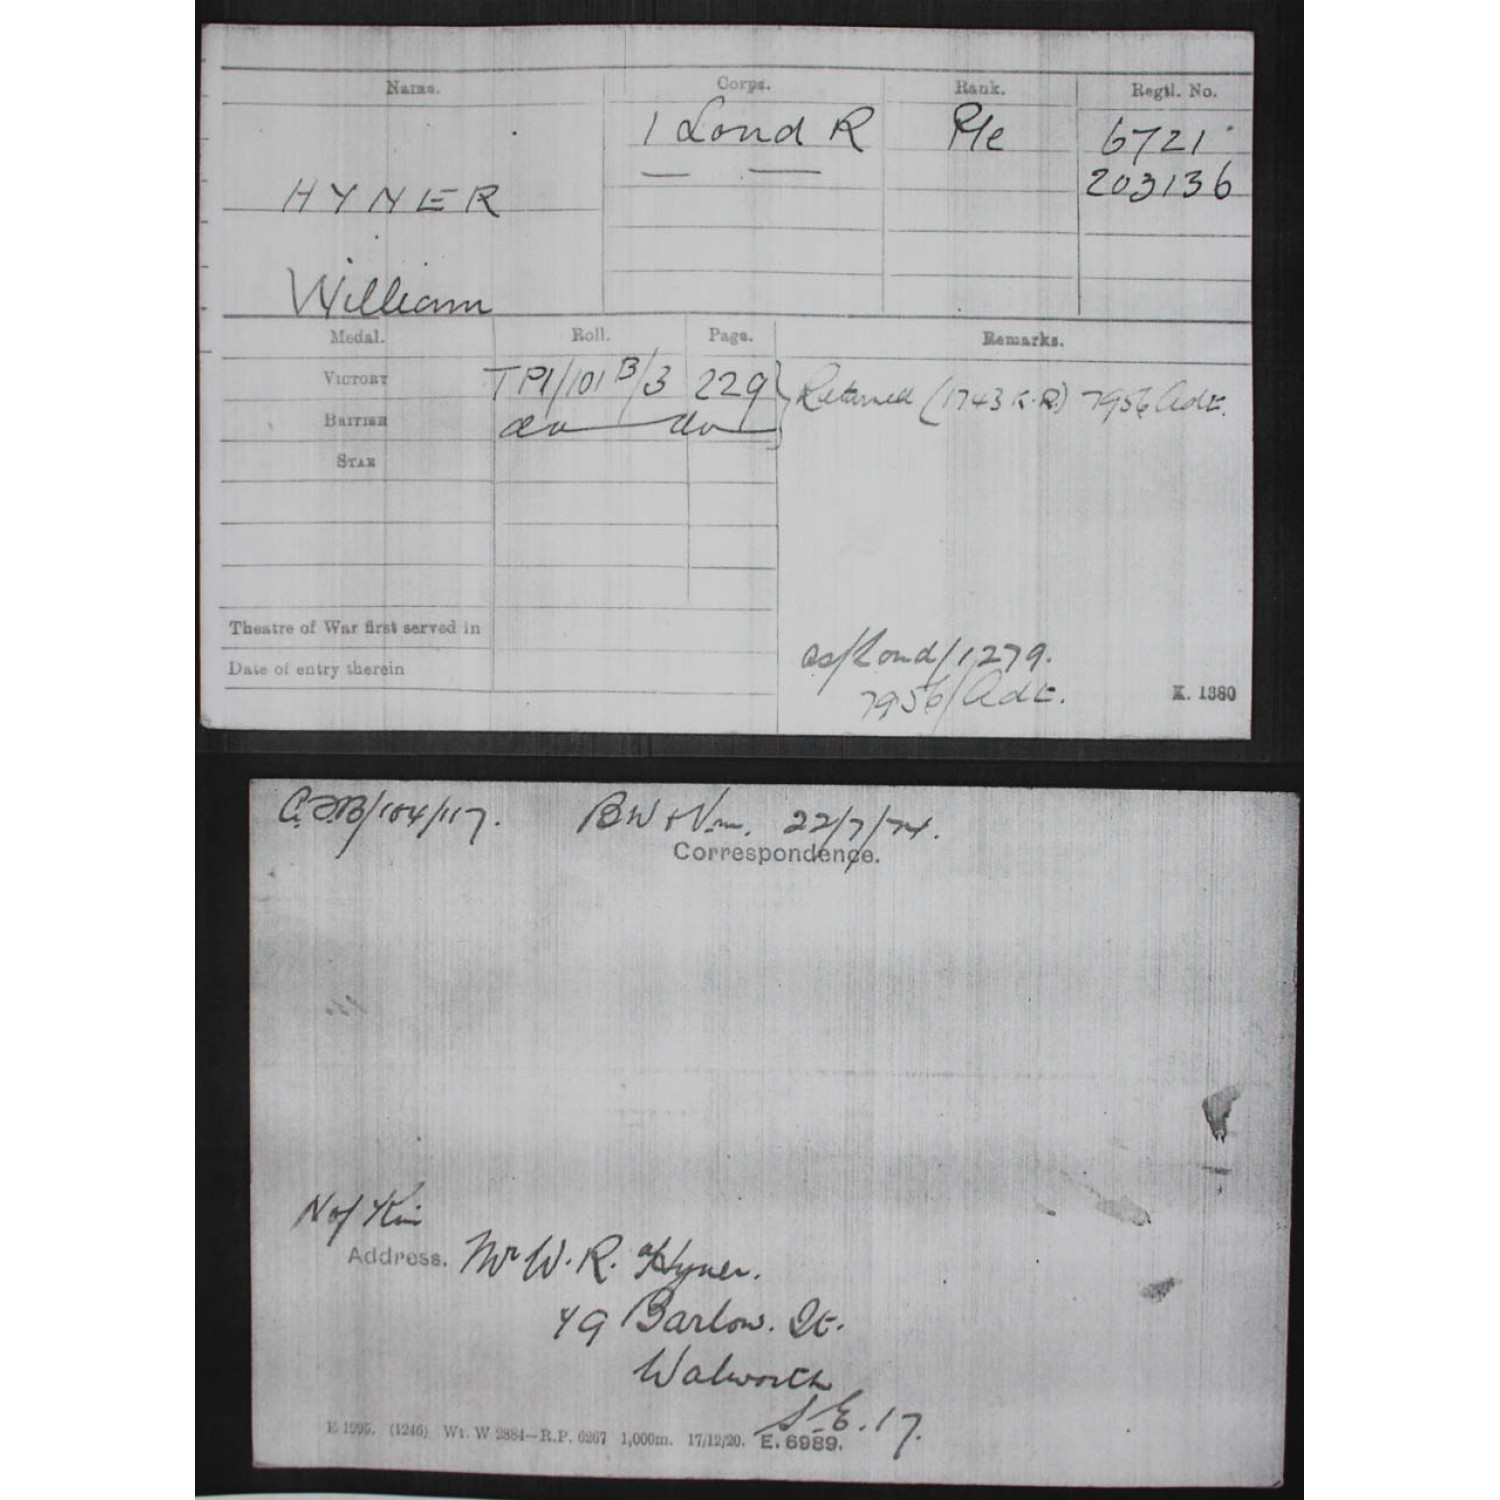 Name. Corps. Rank. Regtl. No.
1 Lond R Pte 6721
203136
HYNER
William
Medal. Roll. Page. Remarks.
VICTORY TP1/101 B/3 229 Returned (1743 K.R.) 7956 Adt.
BRITISH do do
STAR
Theatre of War first served in
Date of entry therein
/Lond/1279.
7956/Adt.
K. 1380
/104/117. BW & Vm. 22/7/74.
Correspondence.
N of Kin
Address. Mr W. R. Hyner.
49 Barlow. St.
Walworth
S.E.17.
E 1995. (1246) Wt. W 2884—R.P. 6267 1,000m. 17/12/20. E. 6989.